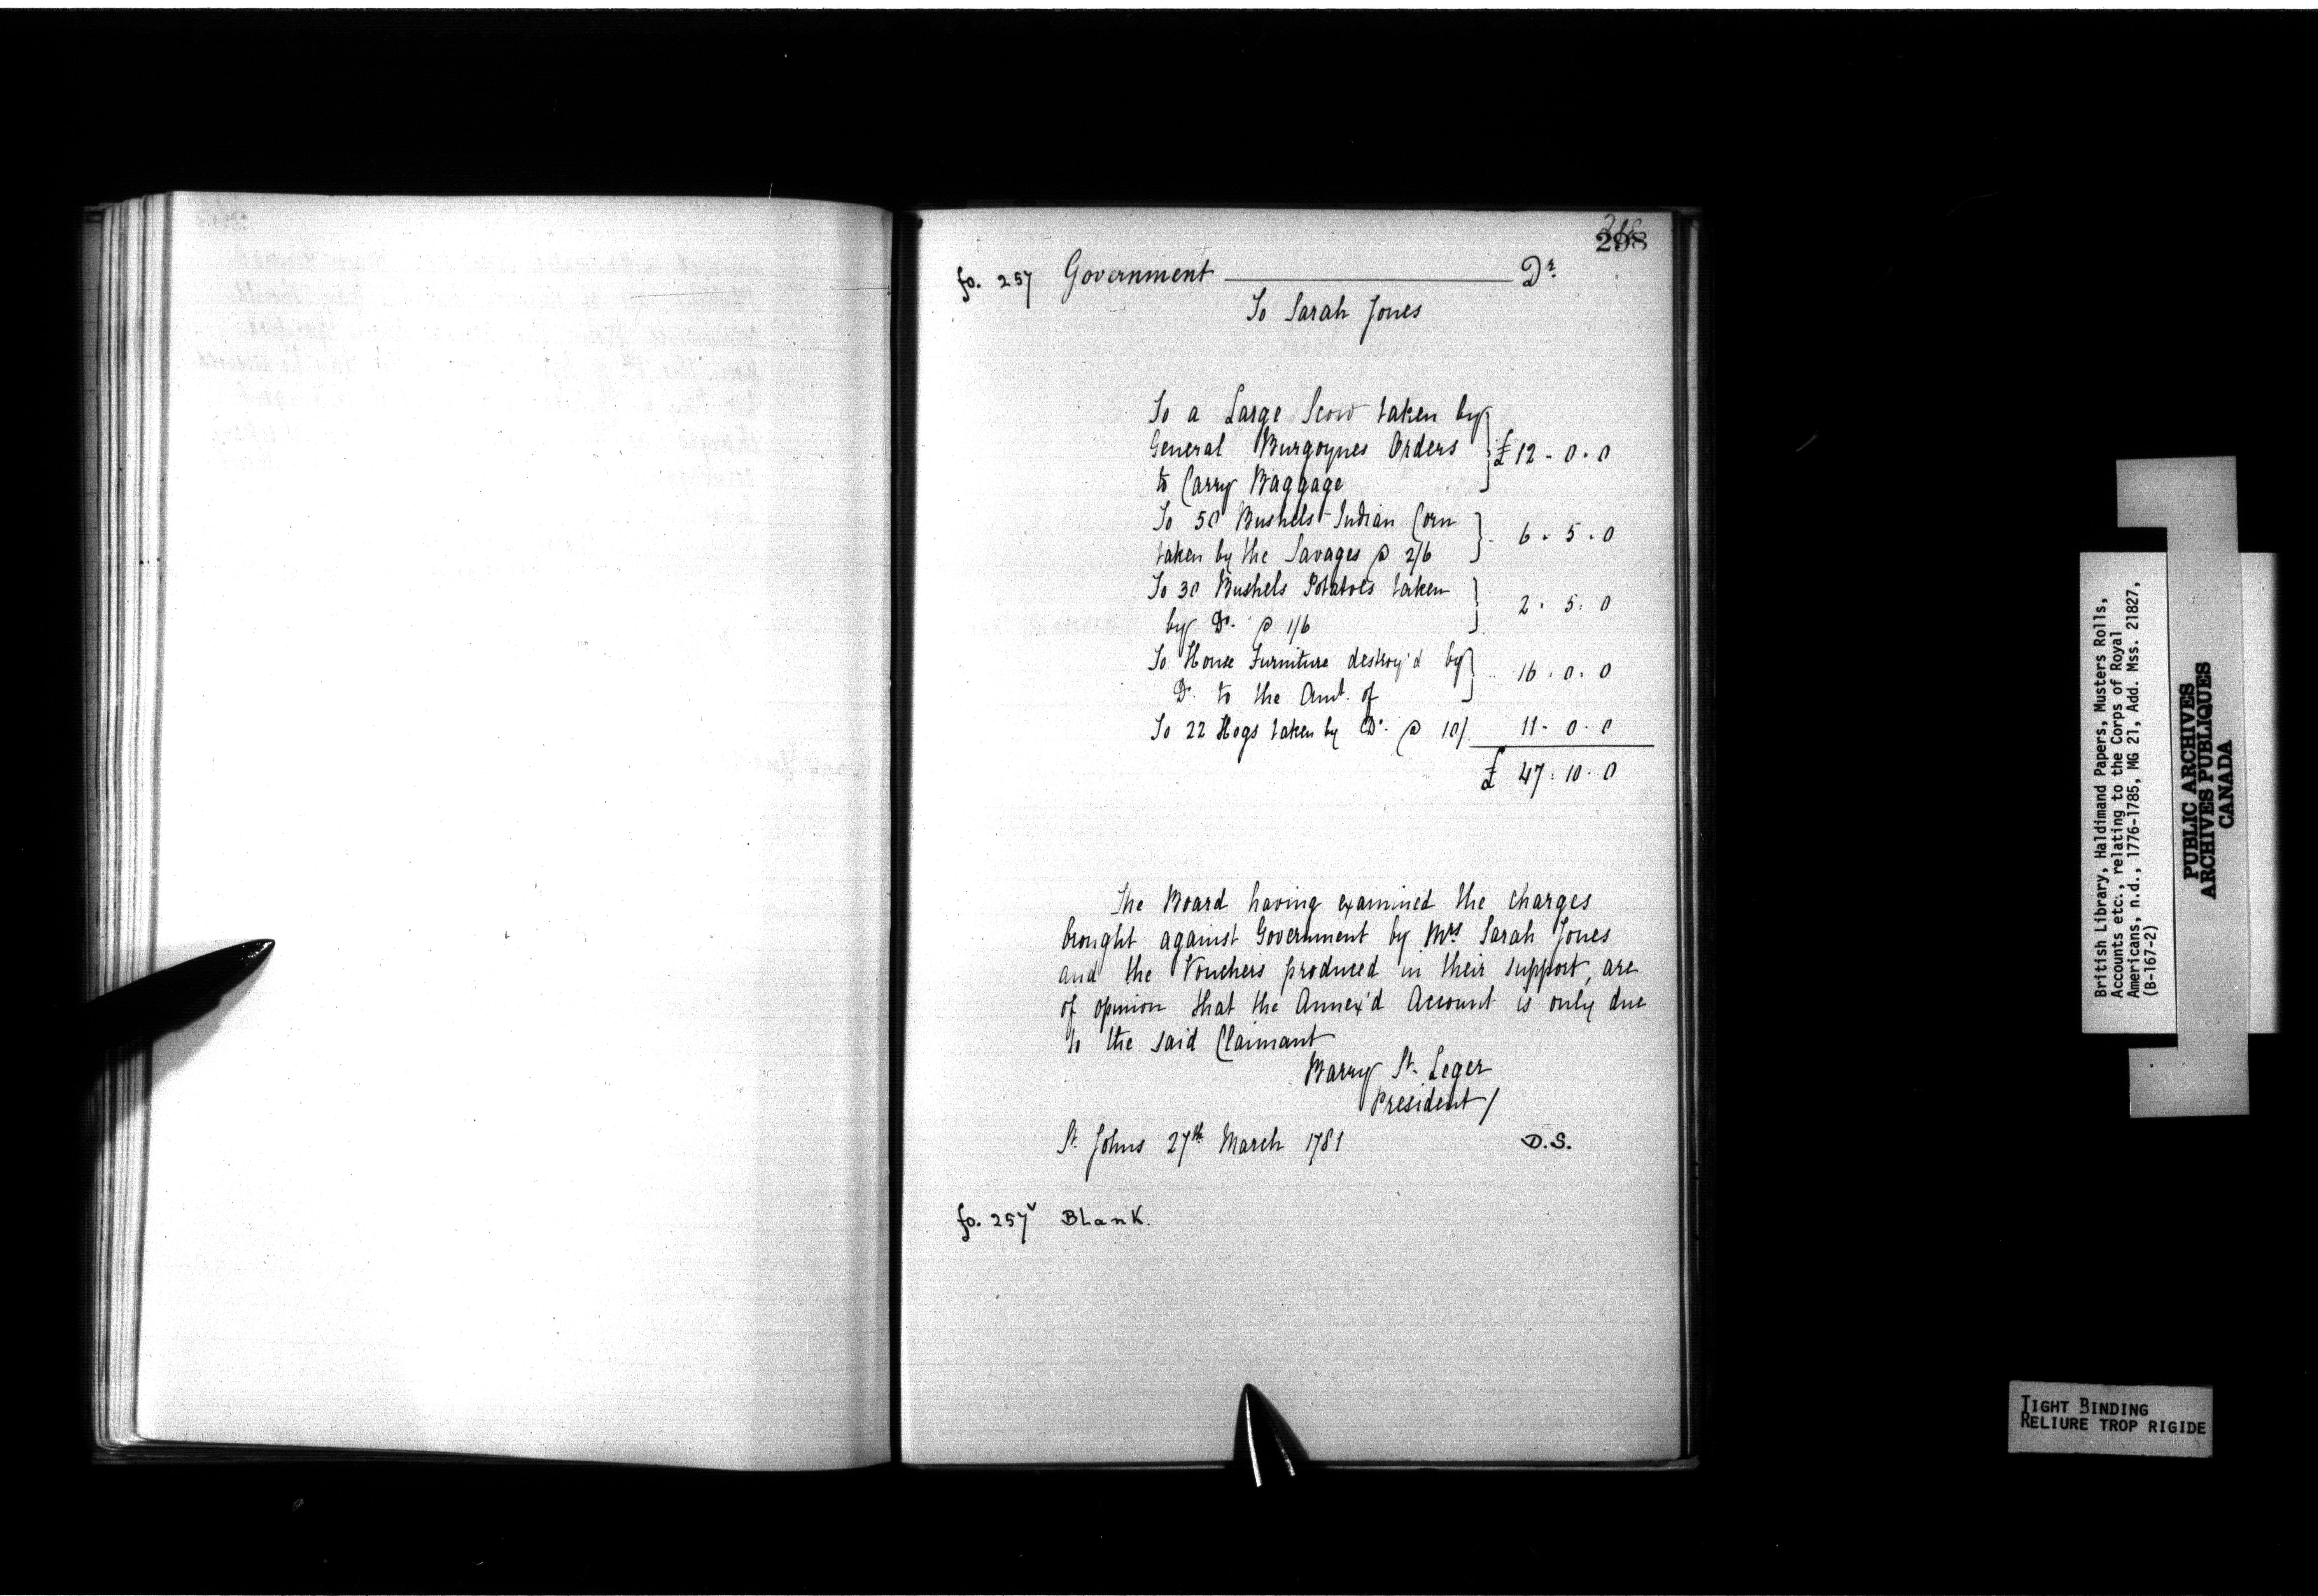 298
fo. 257 Government Dr.
To Sarah Jones
To a Large Scow taken by
General Burgoynes Orders } £ 12 - 0 . 0
to Carry Baggage
To 50 Bushels Indian Corn
taken by the Savages @ 2/6 } 6 . 5 . 0
To 30 Bushels Potatoes taken
by Do. @ 1/6 } 2 . 5 . 0
To House Furniture destroy'd by
Do. to the Amt. of } 16 . 0 . 0
To 22 Hogs taken by Do. @ 10/. 11 - 0 . 0
£ 47 . 10 . 0
The Board having examined the charges
brought against Government by Mrs Sarah Jones
and the Vouchers produced in their support, are
of opinion that the Annex'd Account is only due
to the said Claimant
Barry St. Leger
President/
St. Johns 27th March 1781 D.S.
fo. 257v Blank.
British Library, Haldimand Papers, Musters Rolls,
Accounts etc., relating to the Corps of Royal
Americans, n.d., 1776-1785, MG 21, Add. Mss. 21827,
(B-167-2)
PUBLIC ARCHIVES
ARCHIVES PUBLIQUES
CANADA
TIGHT BINDING
RELIURE TROP RIGIDE